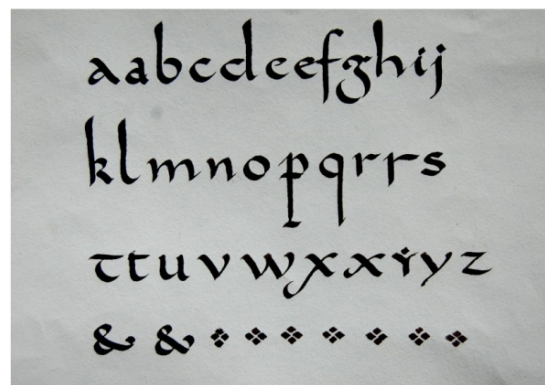 aabccdeefghij
klmnopqrrs
ttuvwxxẏyz
& &